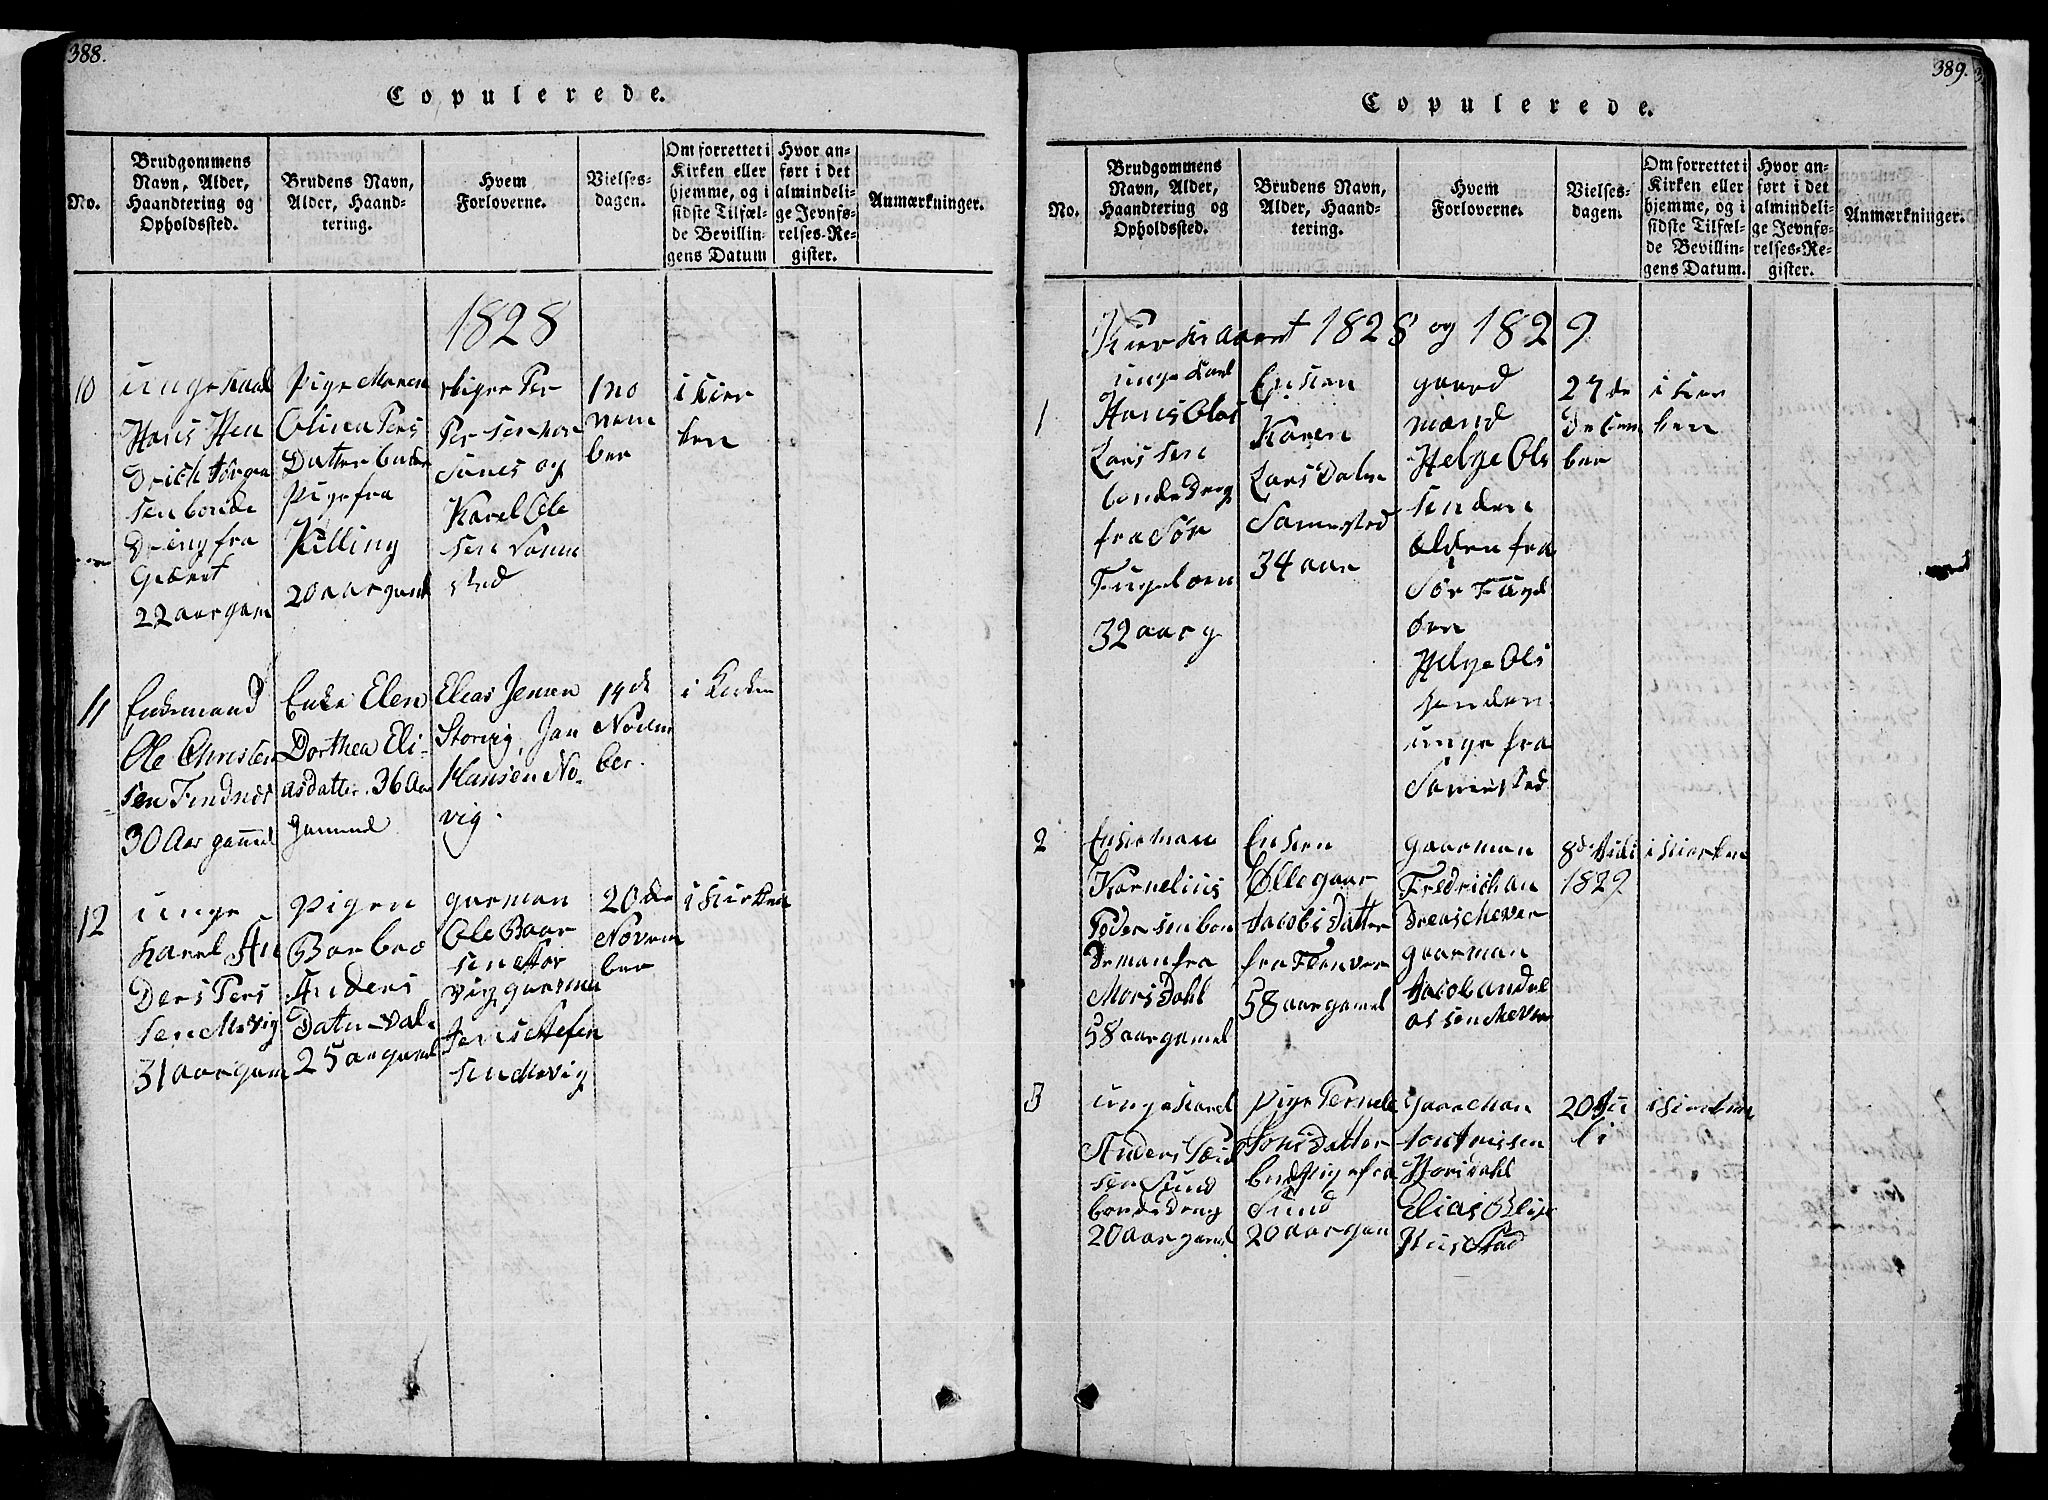 388.
Copulerede.
No.
Brudgommens
Navn, Alder,
Haandtering og
Opholdssted.
Brudens Navn,
Alder, Haand-
tering.
Hvem
Forloverne.
Vielses-
dagen.
Om forrettet i
Kirken eller
hjemme, og i
sidste Tilfæl-
de Bevillin-
gens Datum
Hvor an-
ført i det
almindeli-
ge Jevnfø-
relses-Re-
gister.
Anmærkninger.
1828
10
unge Kaal
Hans Hen
Drich Jørgen
sen bonde
Dreng fra
22 aar gam
Pige Maren
Olina Pers
Datter bonde
Pige fra
Killing
20 aar gaml
Per
Per sen
og
Karel Ole
sen
sted
1 no
vem
ber
i Kier
ken
11
Enkemand
Ole Christen
sen Findnes
30 Aar gammel
Enke Elen
Dorthea Eli-
asdatter. 36 Aar
gammel
Elias Jensen
Storvig, Jan
Hansen No-
vig.
14de
Novem
ber.
i Kirken
12
unge
karel An
Ders Pers
sen Mevig
31 aar gam
Pigen
Barbro
Anders
Dater Val.
25 aar gamel
garman
Ole Baar
sen Stor
vig garman
Jens Stefen
sen Mevig
20 de
Novem
ber
i Kirken
389.
Copulerede.
No.
Brudgommens
Navn, Alder,
Haandtering og
Opholdssted.
Brudens Navn,
Alder, Haand-
tering.
Hvem
Forloverne.
Vielses-
dagen.
Om forrettet i
Kirken eller
hjemme, og i
sidste Tilfæl-
de Bevillin-
gens Datum.
Hvor an-
ført i det
almindeli-
ge Jevnfø-
relses-Re-
gister.
Anmærkninger.
Kirkeaaret 1828 og 1829
1
unge Karl
Hans Olai
Lars sen
bonde Dreng
fra Sør
Fugeloen
32 aar g
Enken
Karen
Lars Dater
Somersted
34 aar
gaard
mand
Helge Ols
sen den
ælden fra
Sør Fugel
øen
Helge Ols
sen den
unge fra
Somersted
27 de
Desem
ber
i Kier
ken
2
Enkeman
Kornelius
Peder sen bon
de man fra
Mors Dahl
58 aar gamel
Enken
Ollegaar
Jacobs Datter
fra Fenver
58 aar gamel
gaarman
Fredrich an
Dreas Mever
gaarman
Jacob andre
as sen Mever
8de Juli
1829
i Kierken
3
unge Karel
Anders
sen Sund
bonde dreng
20 aar gamel
Pige Pernele
Jons Datter
bond Pige fra
Sund
20 aar gam
Gaar Man
Elias
20 Ju
li
i Kirken